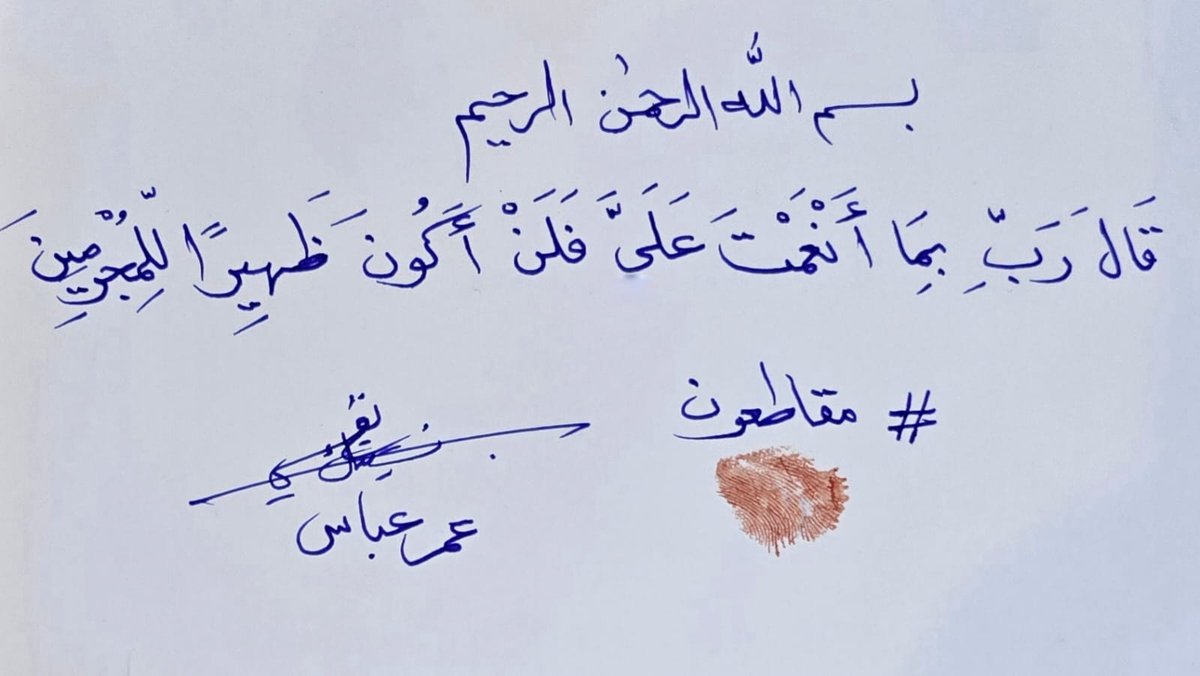 بسم الله الرحمٰن الرحيم
قَالَ رَبِّ بِمَا أَنْعَمْتَ عَلَىَّ فَلَنْ أَكُونَ ظَهِيرًا لِّلْمُجْرِمِينَ
# مقاطعون
عمر عباس